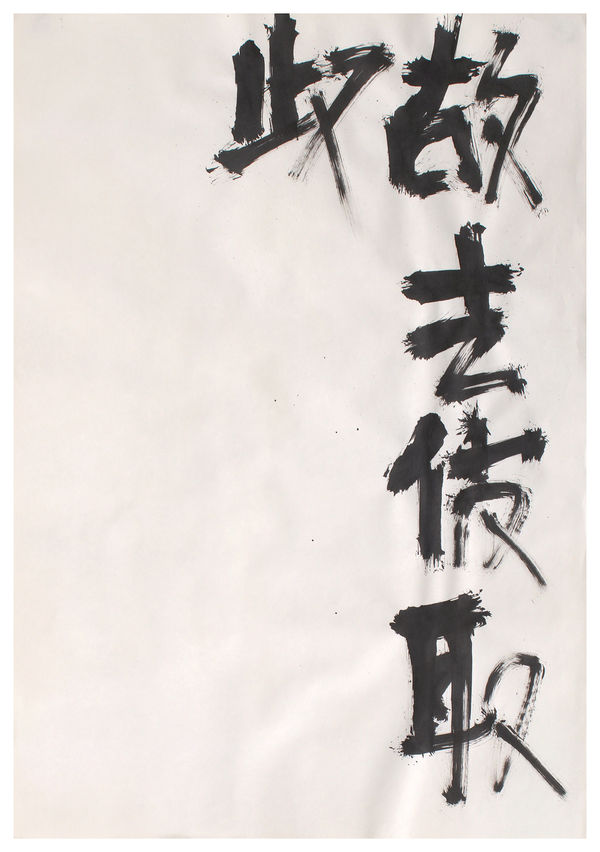 故去彼取
此